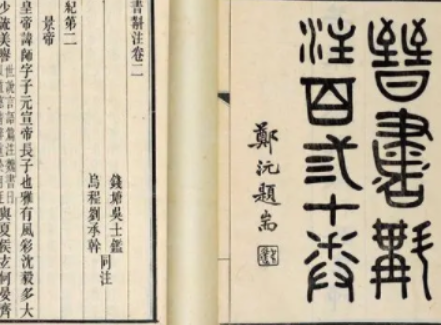 晉書斠
注百弎十卷
鄭沅題耑
書斠注卷二
錢塘吳士鑑
烏程劉承幹
同注
紀第二
景帝
皇帝諱師字子元宣帝長子也雅有風彩沈毅多大
少流美譽
世說言語篇注魏書曰
與夏侯玄何晏齊